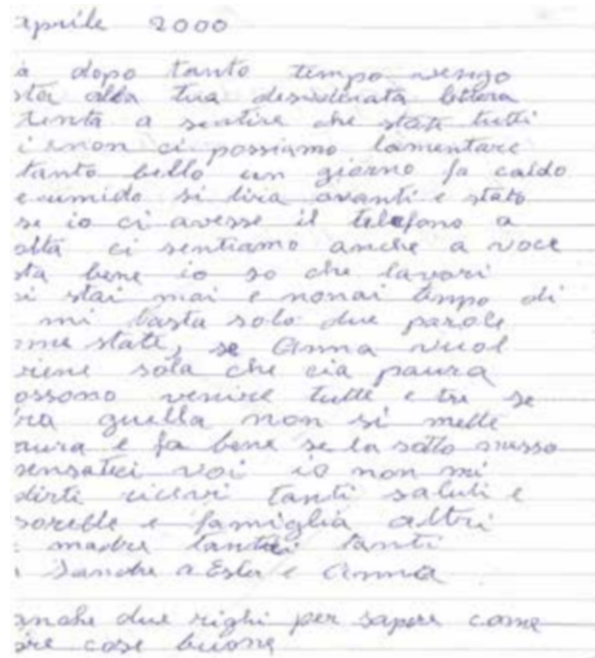 aprile 2000
à dopo tanto tempo vengo
sta alla tua desiderata lettera
tenta a sentire che state tutti
i e non ci possiamo lamentare
tanto bello un giorno fa caldo
e umido si tira avanti e stato
se io ci avesse il telefono a
olta ci sentiamo anche a voce
sta bene io so che lavori
i stai mai e nonai tempo di
mi basta solo due parole
ome state, se Anna vuol
viene sola che cia paura
ossono venire tutte e tre se
ra quella non si mette
aura e fa bene se la sotto
pensateci voi io non mi
dirti ricevi tanti saluti e
sorelle e famiglia altri
madre tanti tanti
a Sandra a Ester e Anna
anche due righi per sapere come
tre cose buone